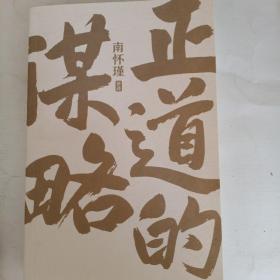 正道的
谋略
南怀瑾